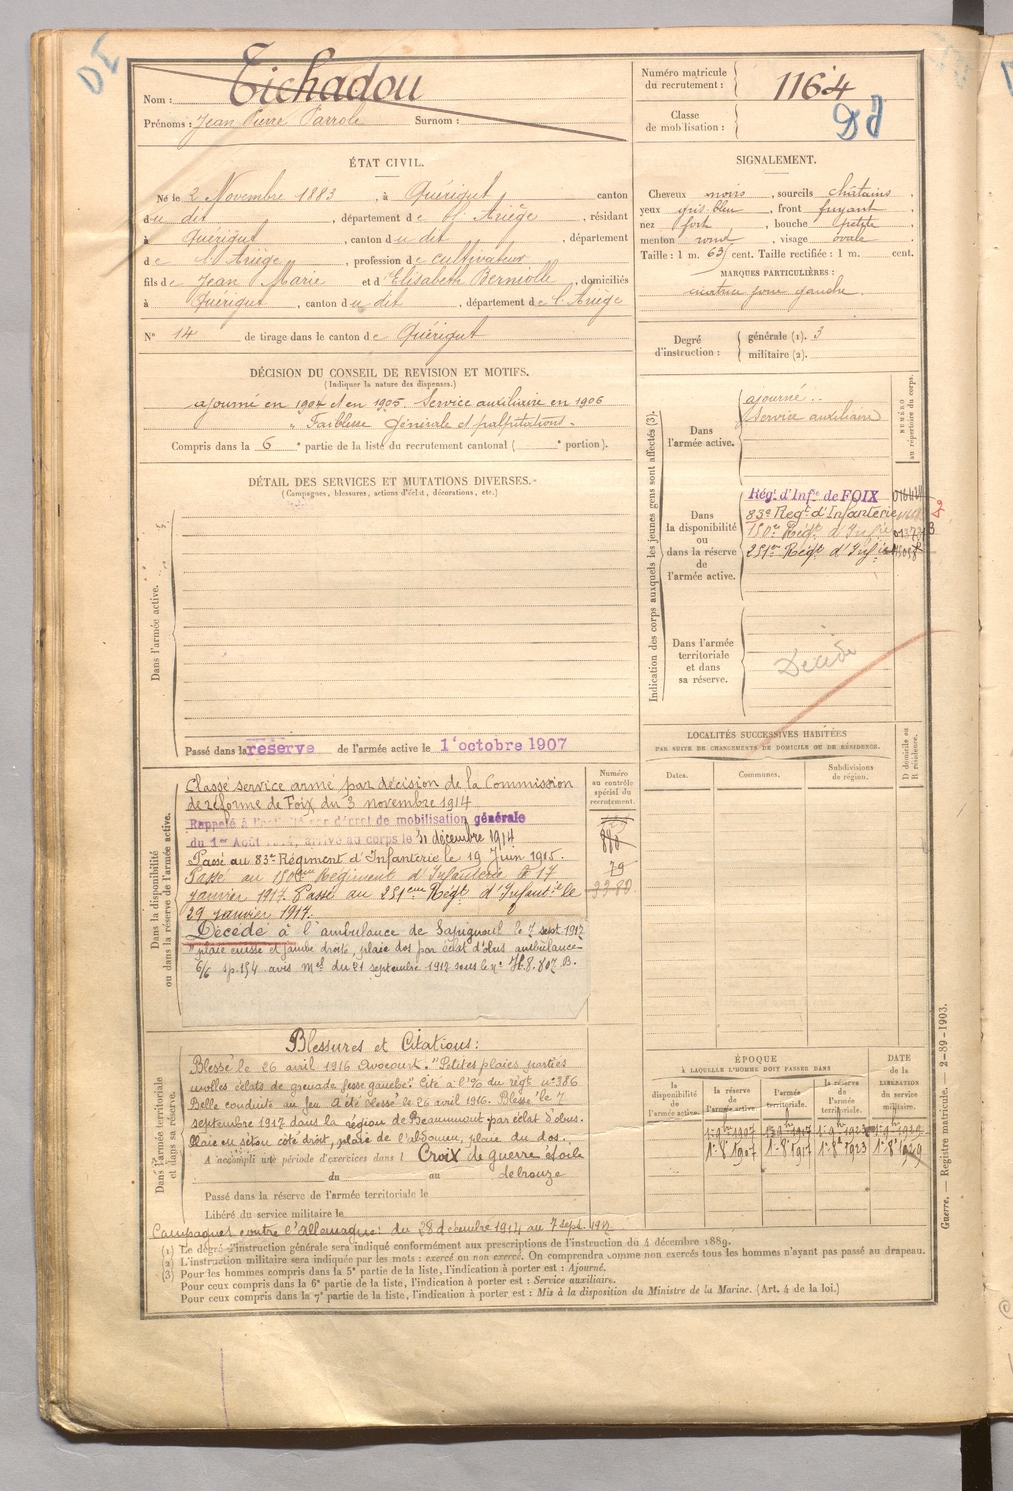 Nom : Tichadou
Prénoms : Jean Pierre Parrole Surnom :
Numéro matricule du recrutement : 1164
Classe de mobilisation :
ÉTAT CIVIL.
Né le 2 Novembre 1883, à Quérigut canton
du dit, département de l'Ariège, résidant
à Quérigut, canton du dit, département
de l'Ariège, profession de cultivateur
fils de Jean Marie et d'Elisabeth Berniolle, domiciliés
à Quérigut, canton du dit, département de l'Ariège
N° 14 de tirage dans le canton de Quérigut
SIGNALEMENT.
Cheveux noirs, sourcils châtains,
yeux gris-bleu, front fuyant,
nez fort, bouche petite,
menton rond, visage ovale
Taille : 1 m. 63 cent. Taille rectifiée : 1 m. cent.
MARQUES PARTICULIÈRES :
cicatrice joue gauche.
Degré d'instruction : générale (1). 3
militaire (2).
DÉCISION DU CONSEIL DE REVISION ET MOTIFS.
(Indiquer la nature des dispenses.)
ajourné en 1904 et en 1905. Service auxiliaire en 1906
" Faiblesse générale et palpitations -
Compris dans la 6e partie de la liste du recrutement cantonal ( e portion).
DÉTAIL DES SERVICES ET MUTATIONS DIVERSES.
(Campagnes, blessures, actions d'éclat, décorations, etc.)
Dans l'armée active.
Passé dans la réserve de l'armée active le 1er octobre 1907
Indication des corps auxquels les jeunes gens sont affectés (3).
NUMÉRO au répertoire du corps.
Dans l'armée active.
ajourné..
Service auxiliaire
Dans la disponibilité ou dans la réserve de l'armée active.
Rég. d'Infie de FOIX
83e Regt d'Infanterie
150e Régt d'Infie
251e Régt d'Infie
Dans l'armée territoriale et dans sa réserve.
Décédé
LOCALITÉS SUCCESSIVES HABITÉES
PAR SUITE DE CHANGEMENTS DE DOMICILE OU DE RÉSIDENCE.
Dates.
Communes.
Subdivisions de région.
D domicile ou R résidence.
Dans la disponibilité ou dans la réserve de l'armée active.
Numéro au contrôle spécial du recrutement.
Classé service armé par décision de la Commission
de réforme de Foix du 3 novembre 1914
Rappelé à l'activité par décret de mobilisation générale
du 1er Août arrivé au corps le 31 décembre 1914
Passé au 83e Régiment d'Infanterie le 19 Juin 1915.
Passé au 150eme Régiment d'Infanterie le 17
janvier 1917. Passé au 251eme Régt d'Infantie le
29 janvier 1917.
79
3382
Décédé à l'ambulance de Sapigneul le 7 sept. 1917
"plaie cuisse et jambe droite, plaie dos par éclat d'obus ambulance
6/6 sp.154 avis mel du 21 septembre 1917 sous le n° H.8.807 B.
Blessures et Citations :
Blessé le 26 avril 1916 Avocourt. "Petites plaies parties
molles éclats de grenade fesse gauche." Cité à l'% du régt n° 386
Belle conduite au feu. A été blessé le 26 avril 1916. Blessé le 7
septembre 1917 dans la région de Beaumont par éclat d'obus.
Plaie en séton côté droit, plaie de l'abdomen, plaie du dos.
Dans l'armée territoriale et dans sa réserve.
A accompli une période d'exercices dans l
Croix de guerre étoile
de bronze
du au
Passé dans la réserve de l'armée territoriale le
Libéré du service militaire le
Campagnes contre l'Allemagne : du 28 décembre 1914 au 7 sept. 1917.
ÉPOQUE
À LAQUELLE L'HOMME DOIT PASSER DANS
la disponibilité de l'armée active.
la réserve de l'armée active.
l'armée territoriale.
la réserve de l'armée territoriale.
DATE de la LIBÉRATION du service militaire.
1er 8e 1907 1er 8e 1917 1er 8e 1923 1er 8e 1929
(1) Le degré d'instruction générale sera indiqué conformément aux prescriptions de l'instruction du 4 décembre 1889.
(2) L'instruction militaire sera indiquée par les mots : exercé ou non exercé. On comprendra comme non exercés tous les hommes n'ayant pas passé au drapeau.
(3) Pour les hommes compris dans la 5e partie de la liste, l'indication à porter est : Ajourné.
Pour ceux compris dans la 6e partie de la liste, l'indication à porter est : Service auxiliaire.
Pour ceux compris dans la 7e partie de la liste, l'indication à porter est : Mis à la disposition du Ministre de la Marine. (Art. 4 de la loi.)
Guerre. — Registre matricule. — 2-89-1903.